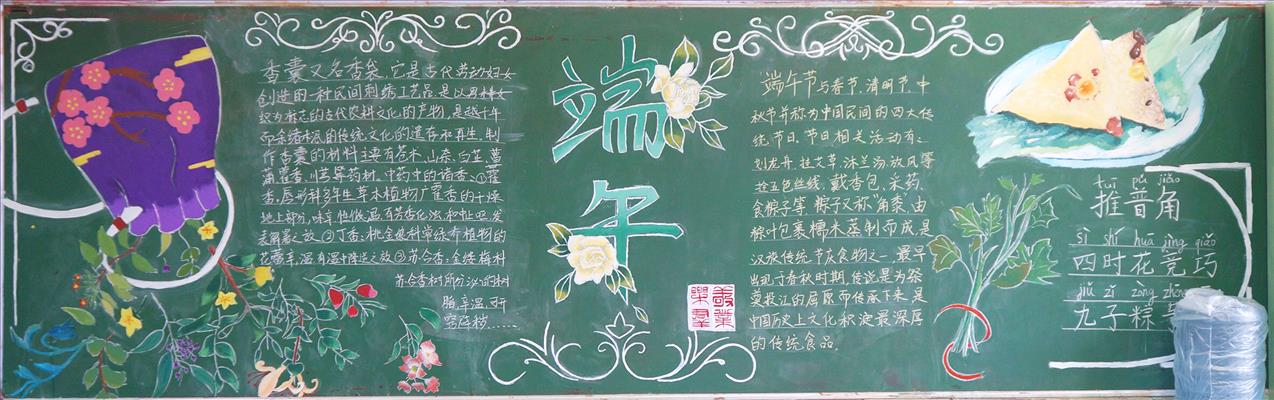 香囊又名香袋，它是古代劳动妇女
创造的一种民间刺绣工艺品是以男耕女
织为标志的古代农耕文化的产物，是越千年
而余绪未泯的传统文化的遗存和再生，制
作香囊的材料主要有苍术、山奈、白芷、菖
蒲、藿香、川芎等药材，中药中的诸香：①藿
香，唇形科多年生草本植物广藿香的干燥
地上部分，味辛性微温，有芳香化浊和中止呕发
表解暑之效②丁香：桃金娘科常绿乔植物的
花蕾，辛，温，有温中降逆之效③苏合香：金缕梅科
苏合香树所分泌的树
脂，辛，温，可开
窍
端
午
端午节与春节、清明节、中
秋节并称为中国民间的四大传
统节日。节日相关活动有：
划龙舟、挂艾草、沐兰汤、放风筝
拴五色丝线，戴香包，采药、
食粽子等，粽子又称"角黍"，由
粽叶包裹糯米蒸制而成是
汉族传统节庆食物之一，最早
出现于春秋时期，传说是为祭
奠投江的屈原而传承下来，是
中国历史上文化积淀最深厚
的传统食品。
tuī pǔ jiǎo
推普角
sì shí huā jìng qiǎo
四时花竞巧
jiǔ zǐ zòng zhēng
九子粽